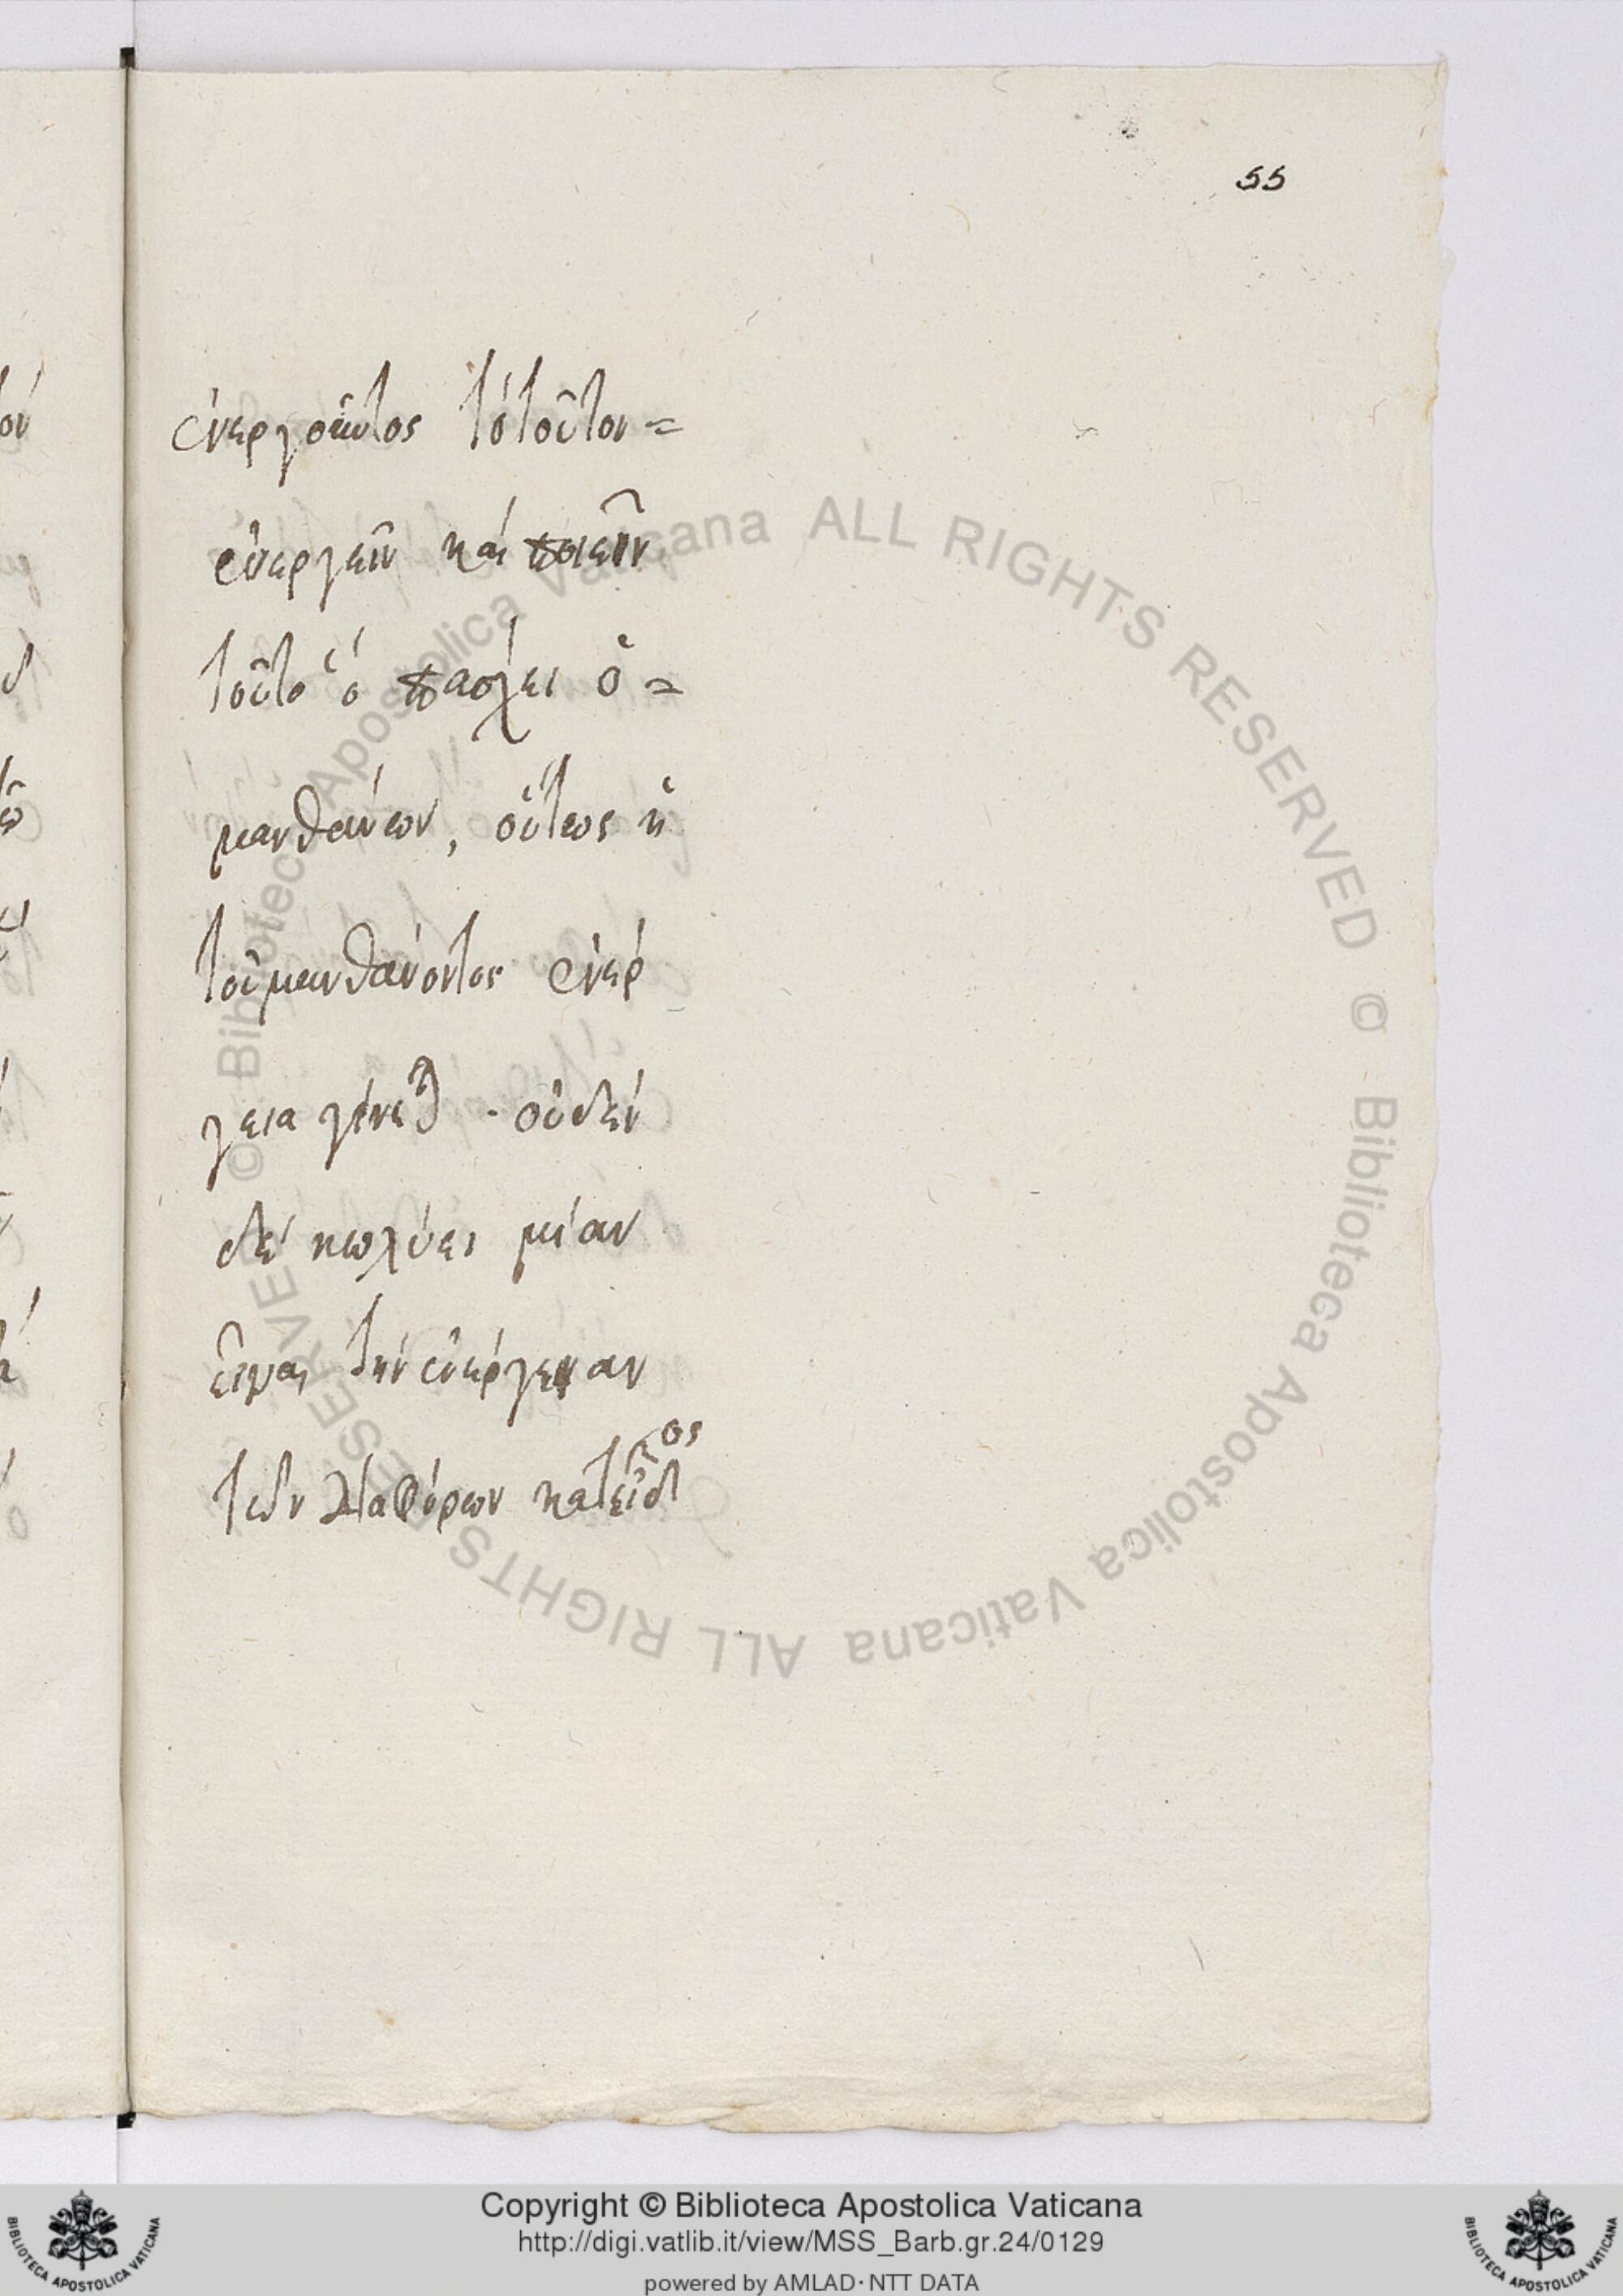 55
ἐνεργοῦντος τὸ τοῦτον=
ἐνεργεῖν καὶ ποιεῖν
τοῦτο ὃ πάσχει ὁ=
μανθάνων, οὕτως ἡ
τοῦ μανθάνοντος ἐνέρ
γεια γίνε). οὐδὲν
δὲ κωλύει μίαν
εἶναι τὴν ἐνέργειαν
τῶν διαφόρων κατ εἶδος
© Biblioteca Apostolica Vaticana ALL RIGHTS RESERVED © Biblioteca Apostolica Vaticana ALL RIGHTS RESERVED
Copyright © Biblioteca Apostolica Vaticana
http://digi.vatlib.it/view/MSS_Barb.gr.24/0129
powered by AMLAD·NTT DATA
BIBLIOTECA APOSTOLICA VATICANA
BIBLIOTECA APOSTOLICA VATICANA